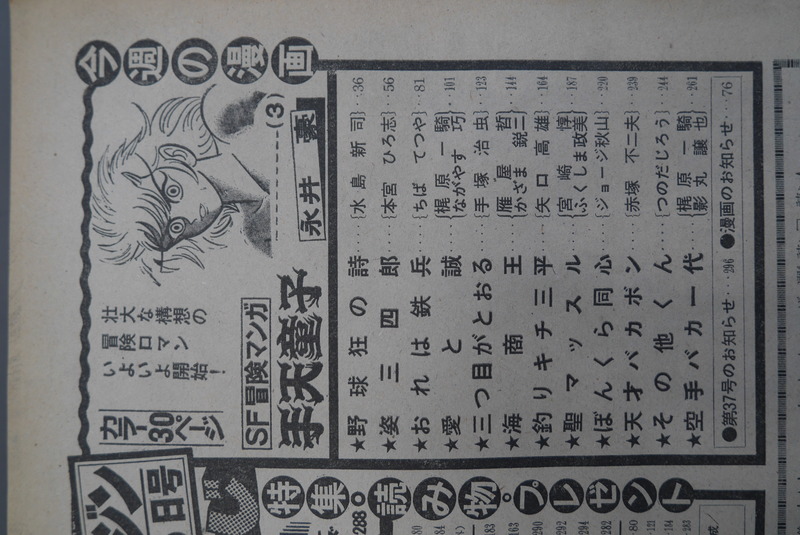 今週の漫画
壮大な構想の
冒険ロマン
いよいよ開始!
カラー30ページ
SF冒険マンガ
手天童子
永井豪
(3)
★野球狂の詩……{水島新司}…36
★姿三四郎……{本宮ひろ志}…56
★おれは鉄兵……{ちばてつや}…81
★愛と誠……{梶原一騎 ながやす巧}…101
★三つ目がとおる……{手塚治虫}…123
★海商王……{雁屋哲 かざま鋭二}…144
★釣りキチ三平……{矢口高雄}…164
★聖マッスル……{宮崎惇 ふくしま政美}…187
★ぼんくら同心……{ジョージ秋山}…220
★天才バカボン……{赤塚不二夫}…239
★その他くん……{つのだじろう}…244
★空手バカ一代……{梶原一騎 影丸譲也}…261
●第37号のお知らせ…296 ●漫画のお知らせ…76
ジン
日号
特集・読み物・プレゼント
288